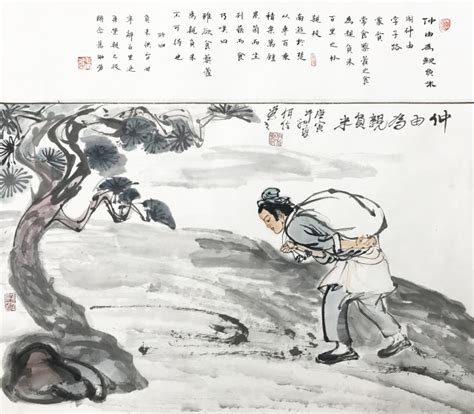 仲由為親負米
周仲由
字子路
家貧
常食藜藿之食
為親負米
百里之外
親歿
南遊於楚
從車百乘
積粟萬鍾
累茵而
乃嘆曰
雖欲食藜藿
為親負米
不可得也
詩曰
負米供
寧辭百里遙
身榮親已歿
猶念舊劬勞
仲由為親負米
庚寅